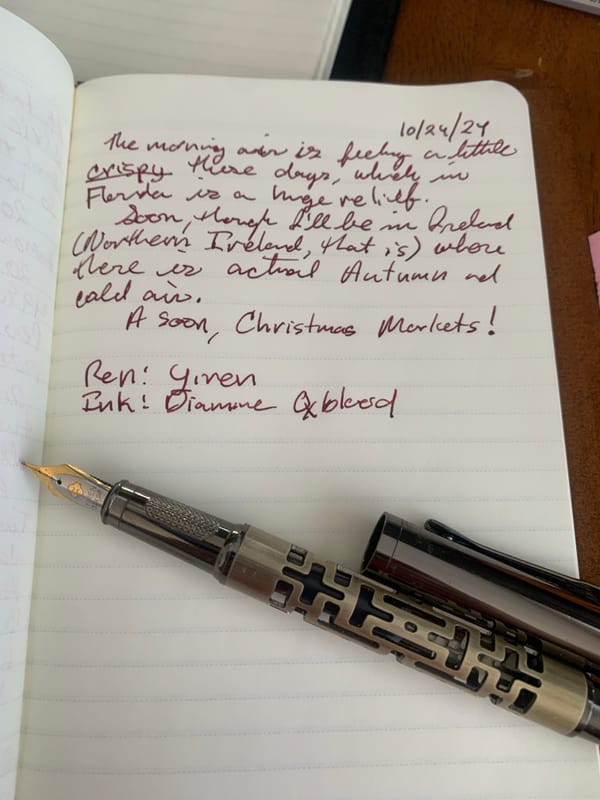 10/24/24
The morning air is feeling a little
crispy these days, which in
Florida is a huge relief.
Soon, though I'll be in Ireland
(Northern Ireland, that is) where
there is actual Autumn and
cold air.
A soon, Christmas Markets!
Pen: Yiren
Ink: Diamine Oxblood